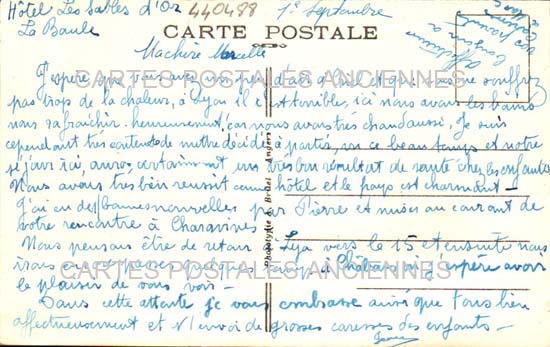 Hôtel Les Sables d'Or
La Baule
440488
1er Septembre
CARTE POSTALE
Ma chère Marcelle
J'espère que vous avez un peu d'air à Chabot que vous ne souffrez
pas trop de la chaleur, à Lyon il c'est terrible, ici nous avons les bains
nous rafraichir heureusement, car nous avons très chaud aussi. Je suis
cependant très contente de m'être décidée à partir, vu ce beau temps et notre
séjour ici, aura certainement un très bon résultat de santé chez les enfants
Nous avons très bien réussit comme hôtel et le pays est charmant —
J'ai eu des bonnes nouvelles par Pierre et mises au courant de
votre rencontre à Charavines
Nous pensons être de retour à Lyon vers le 15 et ensuite nous
irons quelques temps à Chabons où j'espère avoir
le plaisir de vous voir —
Dans cette attente je vous embrasse ainsi que tous bien
affectueusement et vs envoi de grosses caresses des enfants —
Phototypie Bruel Angers
CARTES POSTALES ANCIENNES
CARTES POSTALES ANCIENNES